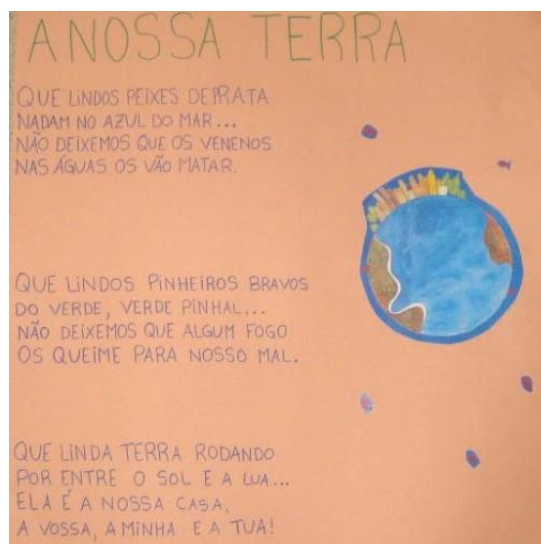 A NOSSA TERRA
QUE LINDOS PEIXES DE PRATA
NADAM NO AZUL DO MAR...
NÃO DEIXEMOS QUE OS VENENOS
NAS ÁGUAS OS VÃO MATAR.
QUE LINDOS PINHEIROS BRAVOS
DO VERDE, VERDE PINHAL...
NÃO DEIXEMOS QUE ALGUM FOGO
OS QUEIME PARA NOSSO MAL.
QUE LINDA TERRA RODANDO
POR ENTRE O SOL E A LUA...
ELA É A NOSSA CASA,
A VOSSA, A MINHA E A TUA!